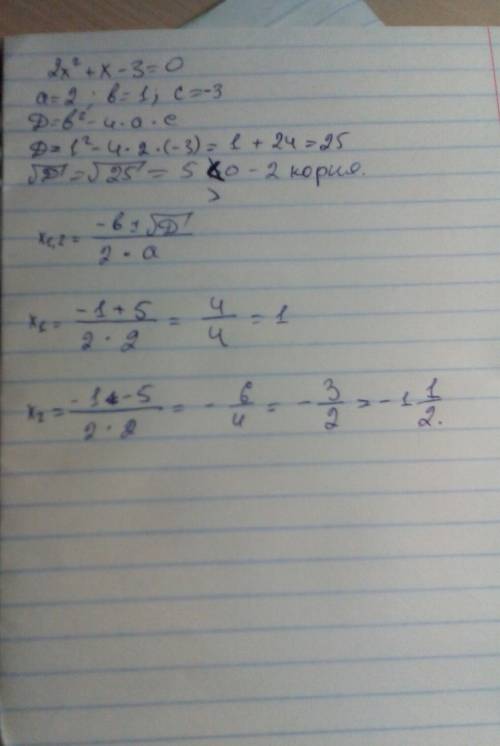 2x² + x - 3 = 0
a = 2 ; в = 1 ; c = -3
D = в² - 4 · a · c
D = 1² - 4 · 2 · (-3) = 1 + 24 = 25
√D = √25 = 5 > 0 - 2 корня.
x₁,₂ = (-в ± √D) / (2 · a)
x₁ = (-1 + 5) / (2 · 2) = 4/4 = 1
x₂ = (-1 - 5) / (2 · 2) = - 6/4 = - 3/2 = -1 1/2.